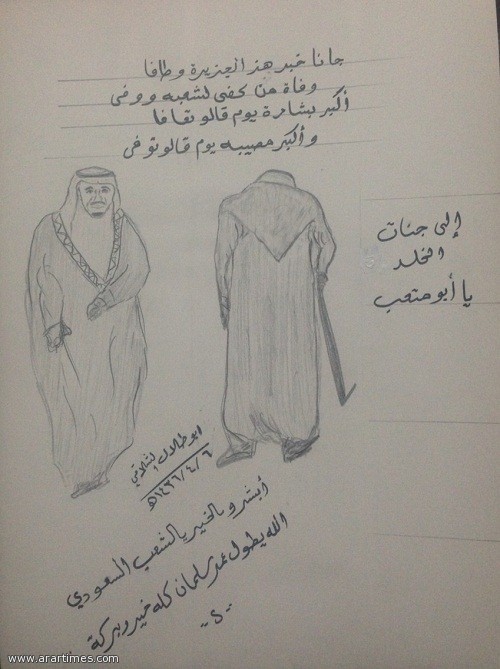 جانا خبر هز الجزيرة وطافا
وفاة من كفى لشعبه ووفى
أكبر بشارة يوم قالو تعافا
وأكبر مصيبه يوم قالو توفى
إلى جنات
الخلد
يا أبو متعب
ابو طلال الشلاقي
١٤٣٦/٤/٦هـ
أبشرو بالخير يالشعب السعودي
الله يطول عمر سلمان كله خير وبركة
www.arartimes.com